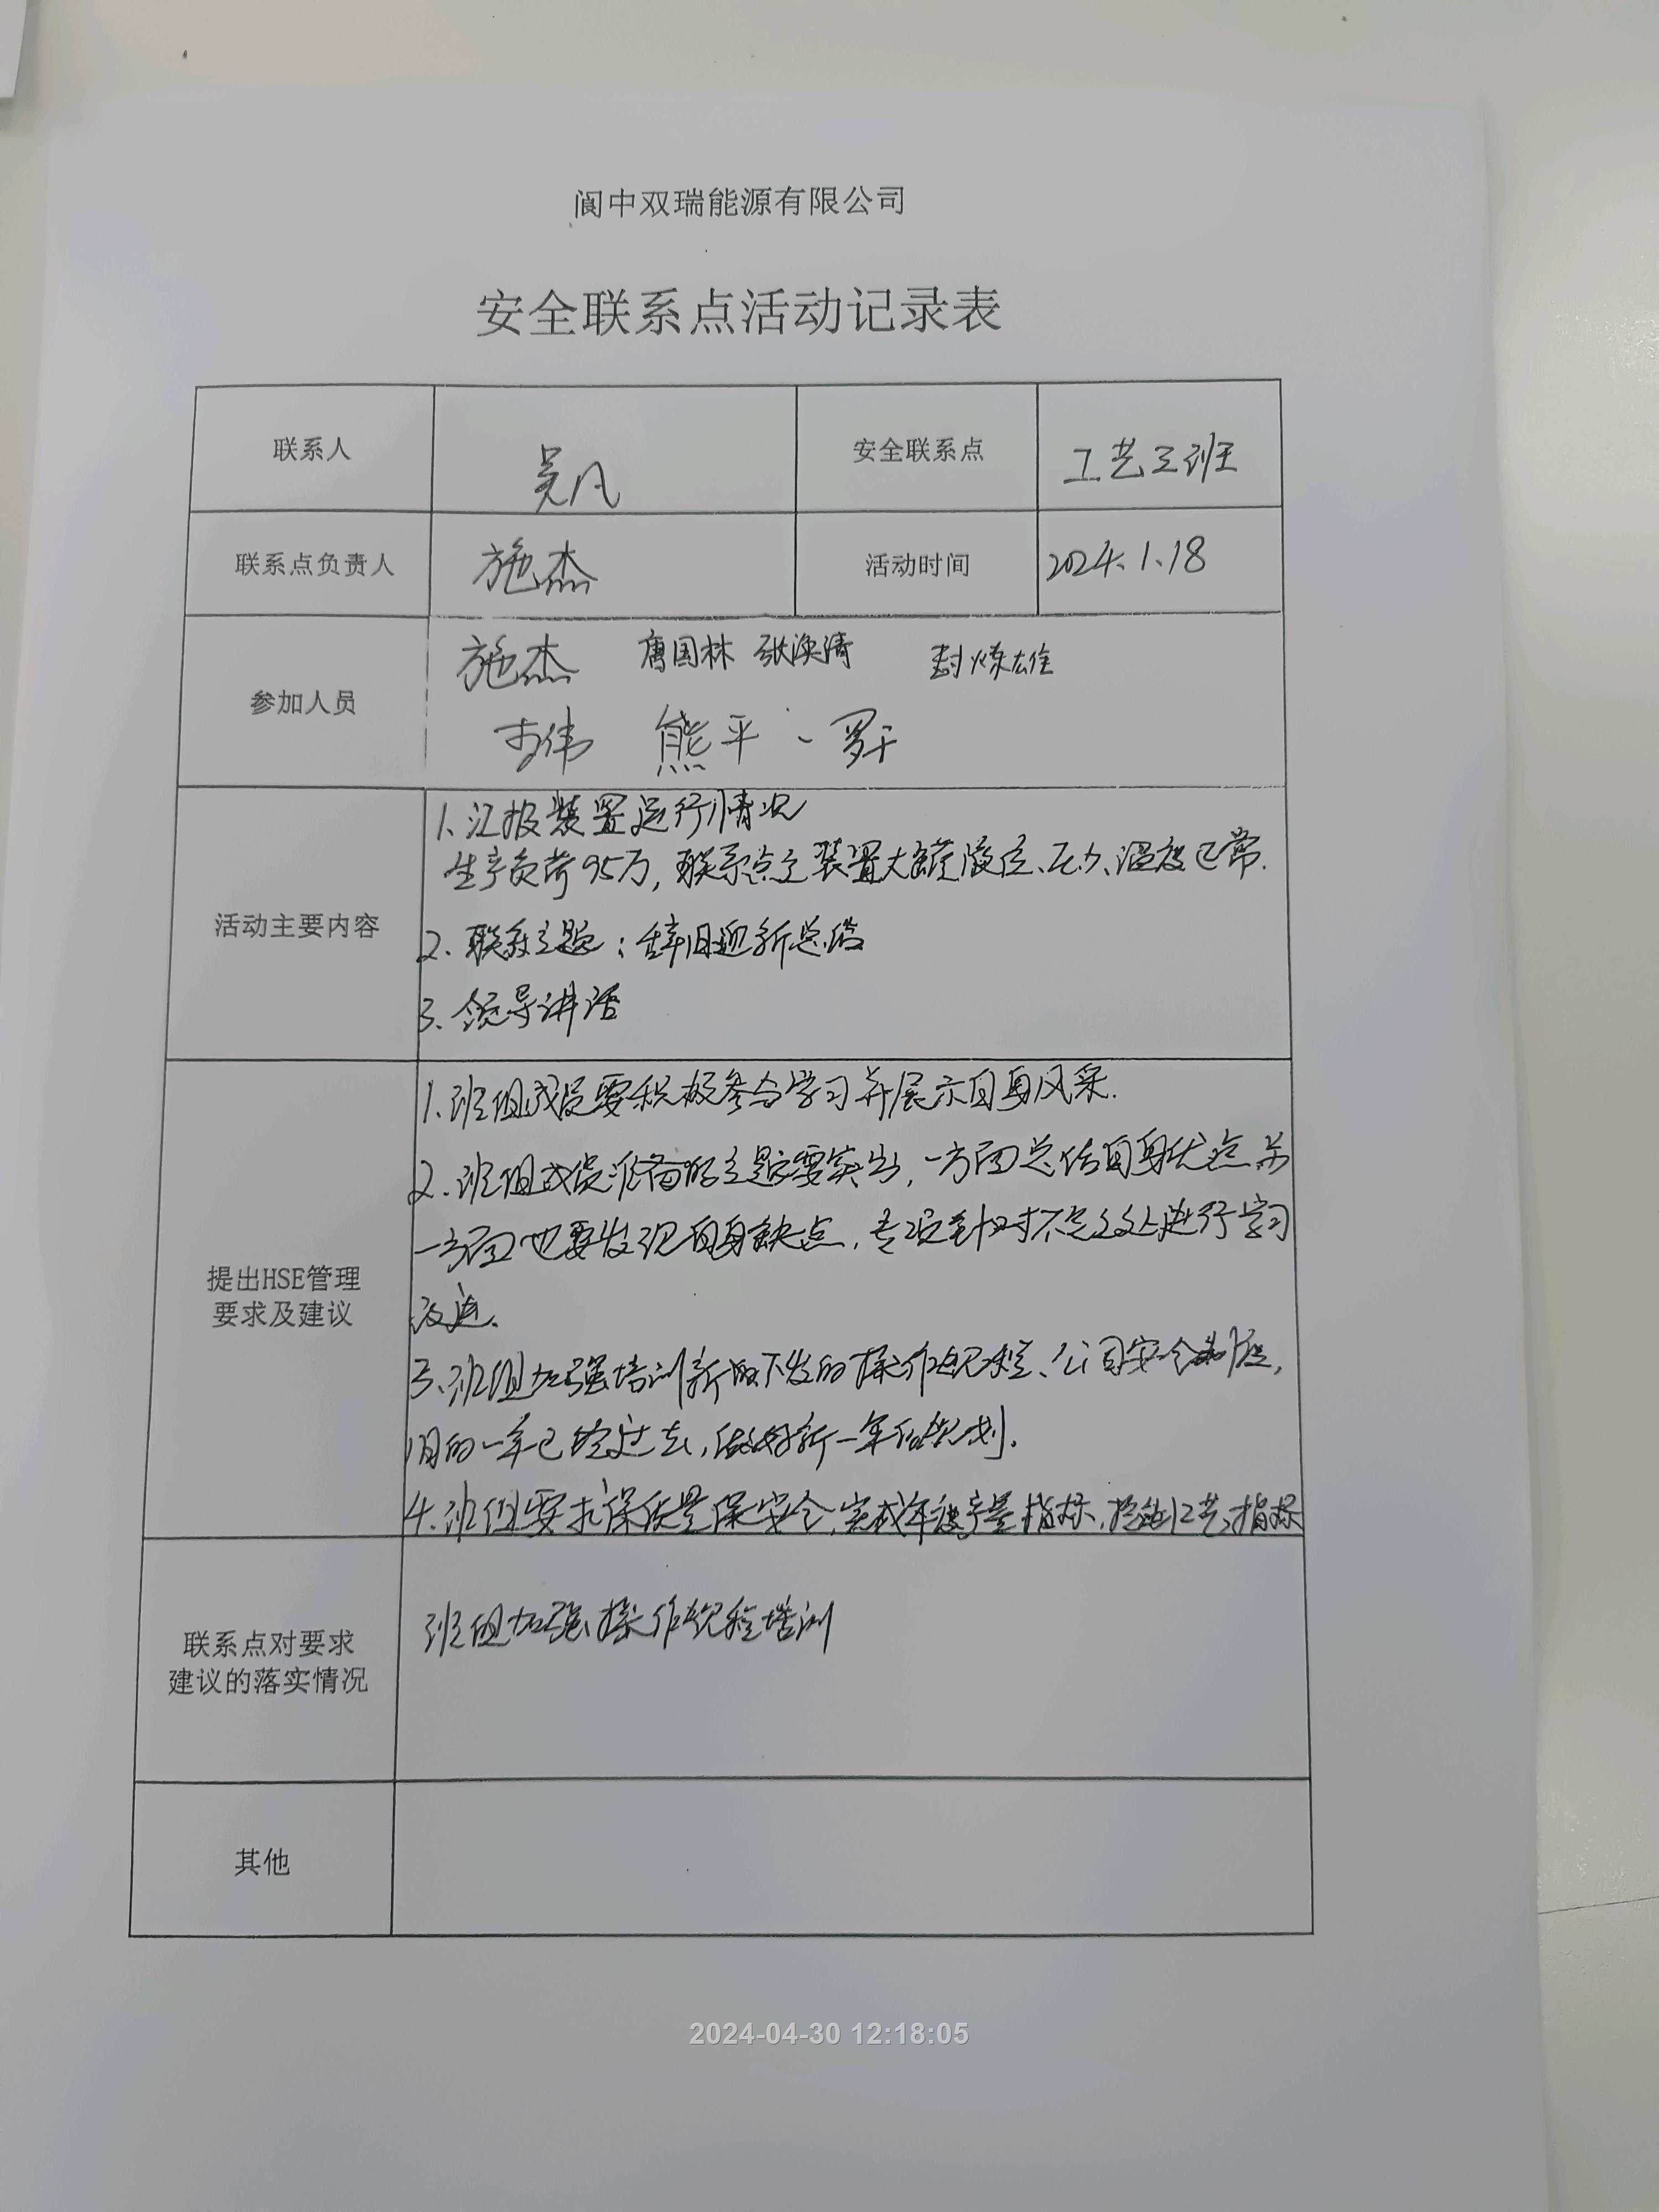 阆中双瑞能源有限公司
安全联系点活动记录表
联系人 吴凡 安全联系点 工艺三班
联系点负责人 施杰 活动时间 2024.1.18
参加人员
施杰 唐国林 张涣清 封炼雄
李伟 熊平、罗干
活动主要内容
1、汇报装置运行情况
生产负荷95万,联系点主装置大罐液位、压力、温度正常.
2. 联系主题:辞旧迎新总结
3、领导讲话
提出HSE管理
要求及建议
1、班组成员要积极参与学习并展示自身风采.
2、班组成员准备的主题要突出,一方面总结自身优点另
一方面也要发现自身缺点,专项针对不足之处进行学习
改进.
3、班组加强培训新的下发的操作规程、公司安全制度,
的一年已经过去,做好新一年的规划.
4、班组要求保质量保安全,完成年度产量指标,控制工艺指标
联系点对要求
建议的落实情况
班组加强操作规程培训
其他
2024-04-30 12:18:05